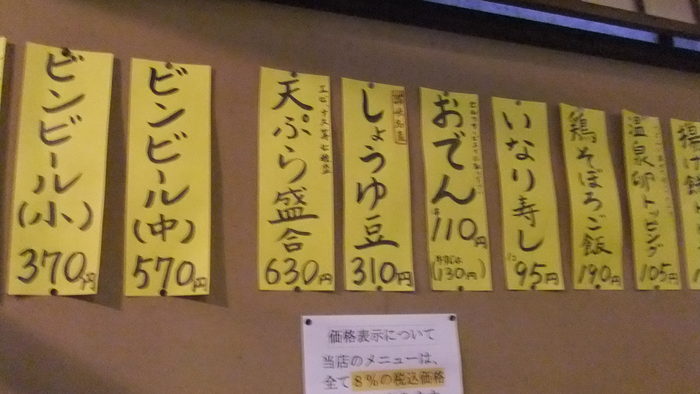 ビンビール(小)
370円
ビンビール(中)
570円
天ぷら盛合
630円
しょうゆ豆
310円
おでん
110円
(130円)
いなり寿し
95円
鶏そぼろご飯
190円
温泉卵トッピング
105円
揚げ
価格表示について
当店のメニューは、
全て8%の税込価格